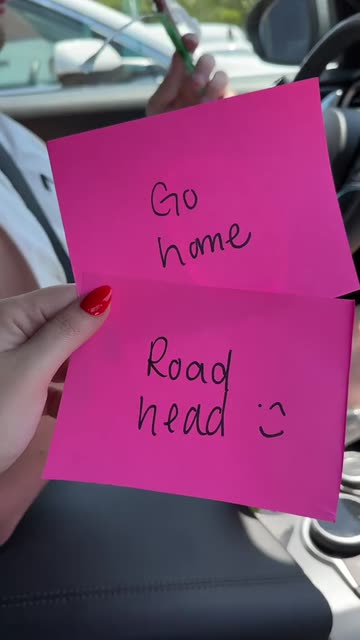 Go
home
Road
head :)